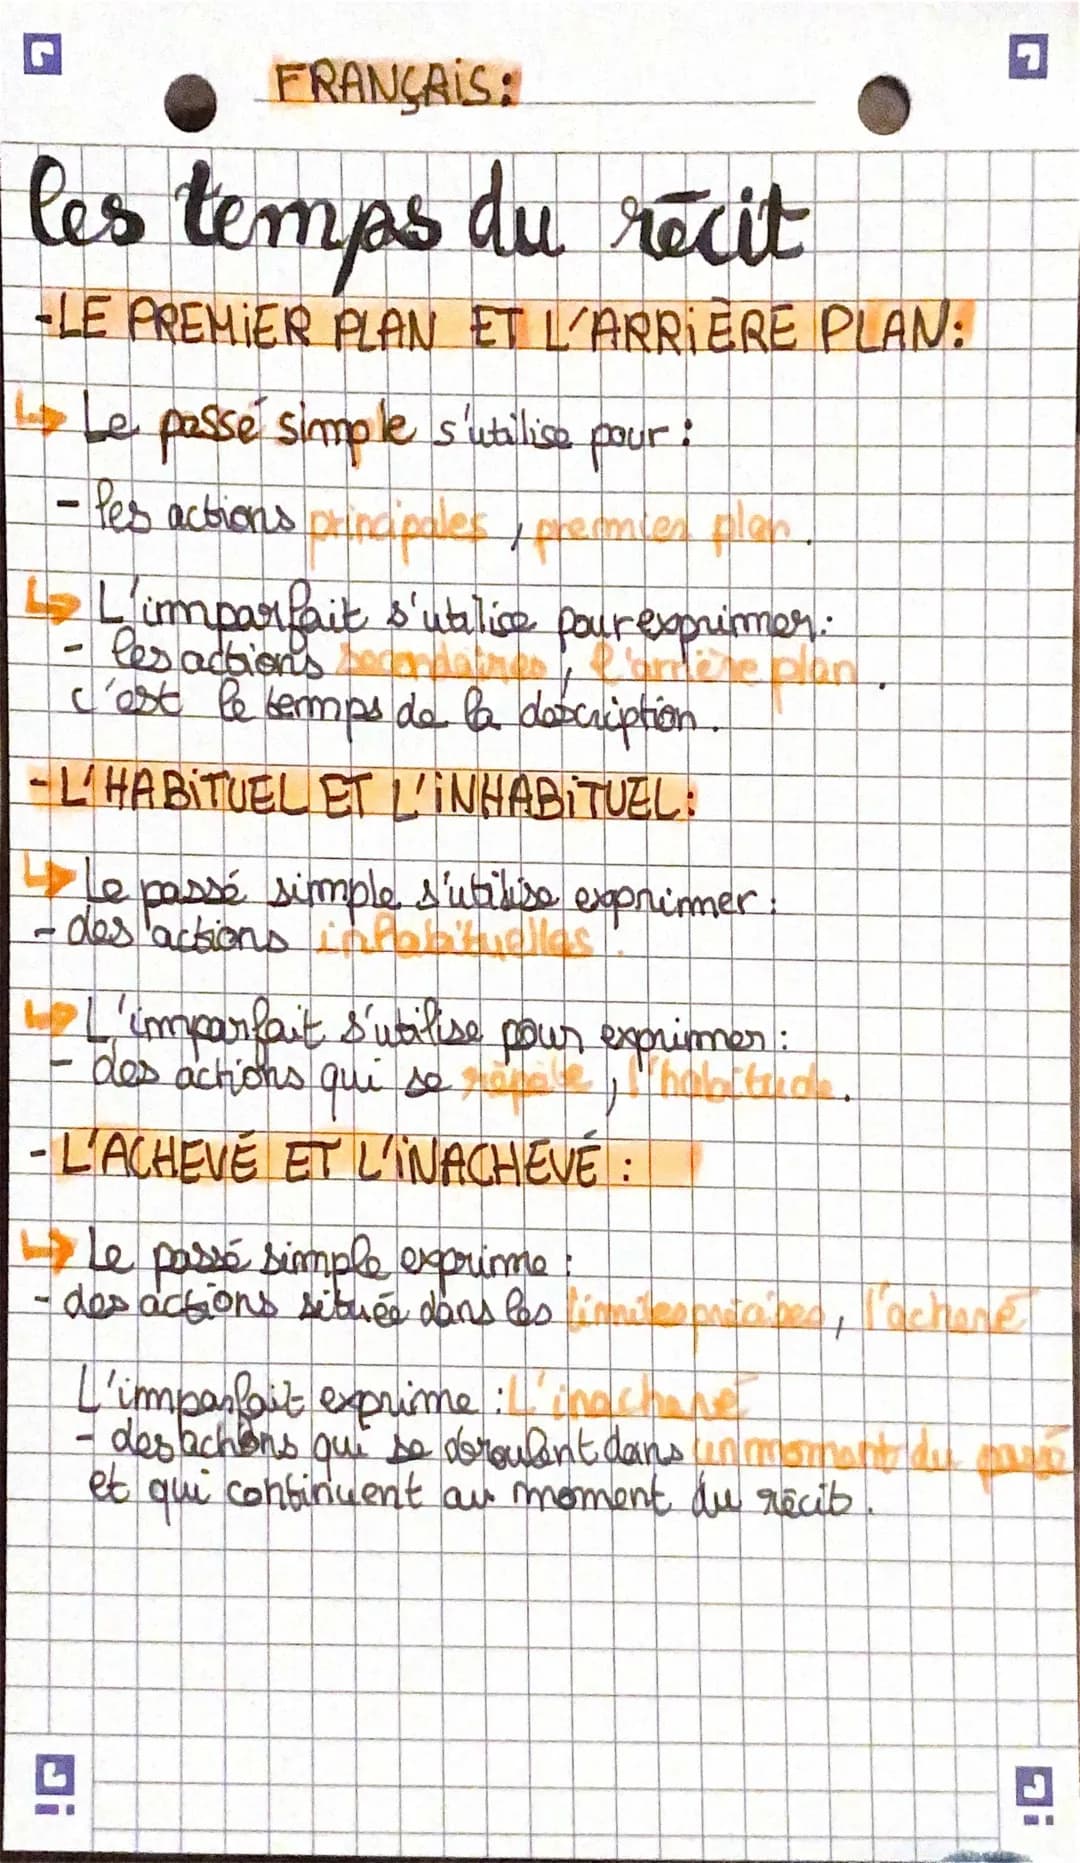 FRANÇAIS:
les temps du récit
-LE PREMIER PLAN ET L'ARRIÈRE PLAN:
↳ Le passé simple s'utilise pour :
- les actions principales, premier plan.
↳ L'imparfait s'utilise pour exprimer:
- les actions secondaires, l'arrière plan.
c'est le temps de la description.
- L'HABITUEL ET L'INHABITUEL:
↳ Le passé simple s'utilise exprimer:
- des actions inhabituelles.
↳ L'imparfait s'utilise pour exprimer :
- des actions qui se répète, l'habitude.
- L'ACHEVÉ ET L'INACHEVÉ :
↳ Le passé simple exprime :
- des actions située dans les limites précises, l'achevé
L'imparfait exprime : L'inachevé
- des actions qui se déroulent dans un moment du passé
et qui continuent au moment du récit.